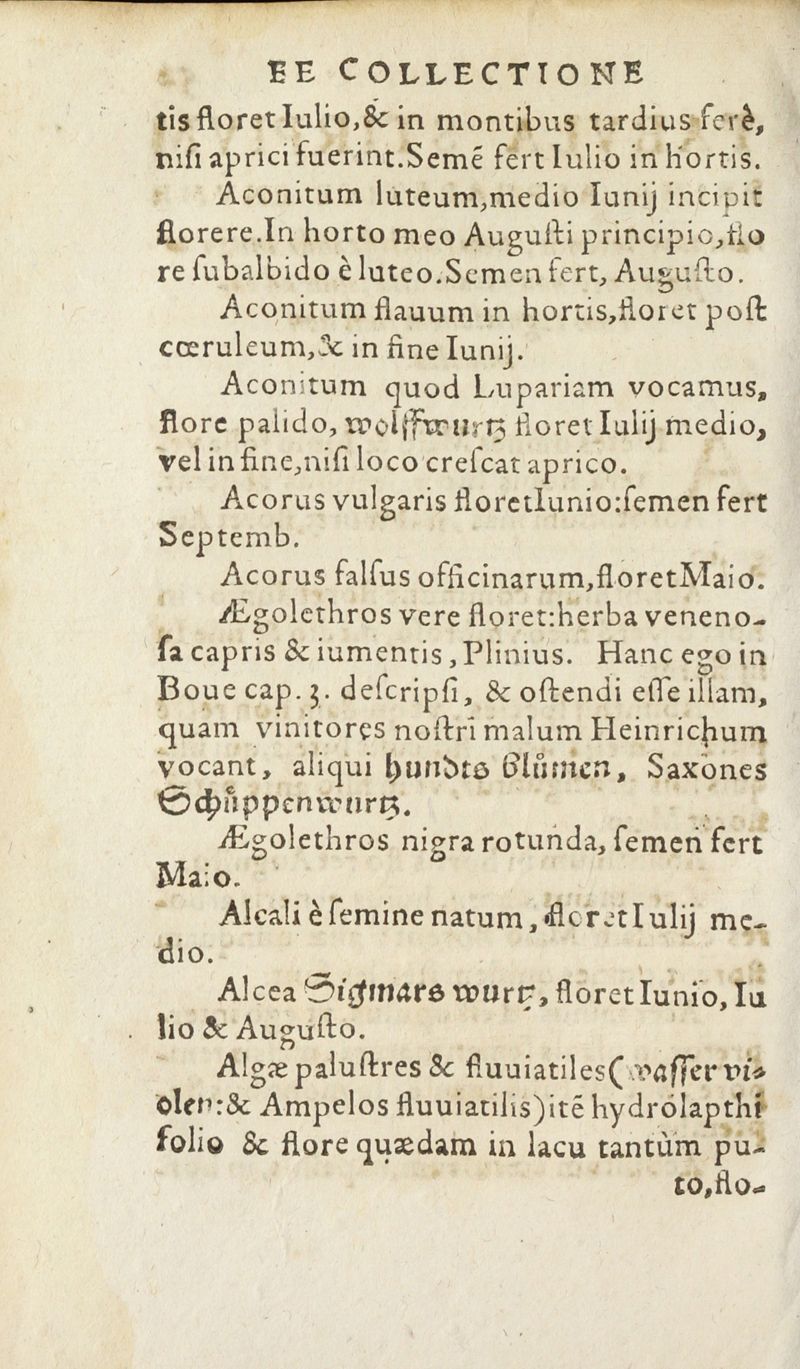 EE COLLECTIONE
tis floret Iulio,& in montibus tardius ferè,
niſi aprici fuerint.Semẽ fert Iulio in hortis.
Aconitum luteum,medio Iunij incipit
florere.In horto meo Auguſti principio,flo
re ſubalbido è luteo.Semen fert, Auguſto.
Aconitum flauum in hortis,floret poſt
cœruleum,& in fine Iunij.
Aconitum quod Lupariam vocamus,
flore palido, wolffwurtz floret Iulij medio,
vel in fine,niſi loco creſcat aprico.
Acorus vulgaris floretIunio:ſemen fert
Septemb.
Acorus falſus officinarum,floretMaio.
Ægolethros vere floret:herba veneno-
ſa capris & iumentis, Plinius. Hanc ego in
Boue cap. 3. deſcripſi, & oſtendi eſſe illam,
quam vinitores noſtri malum Heinrichum
vocant, aliqui hundts blůmen, Saxones
Schůppenwurtz.
Ægolethros nigra rotunda, ſemen fert
Maio.
Alcali è ſemine natum, floret Iulij me-
dio.
Alcea Sigmars wurtz, floret Iunio, Iu
lio & Auguſto.
Algæ paluſtres & fluuiatiles( waſſer vi-
olen:& Ampelos fluuiatilis)itẽ hydrolapthi
folio & flore quædam in lacu tantùm pu-
to,flo-